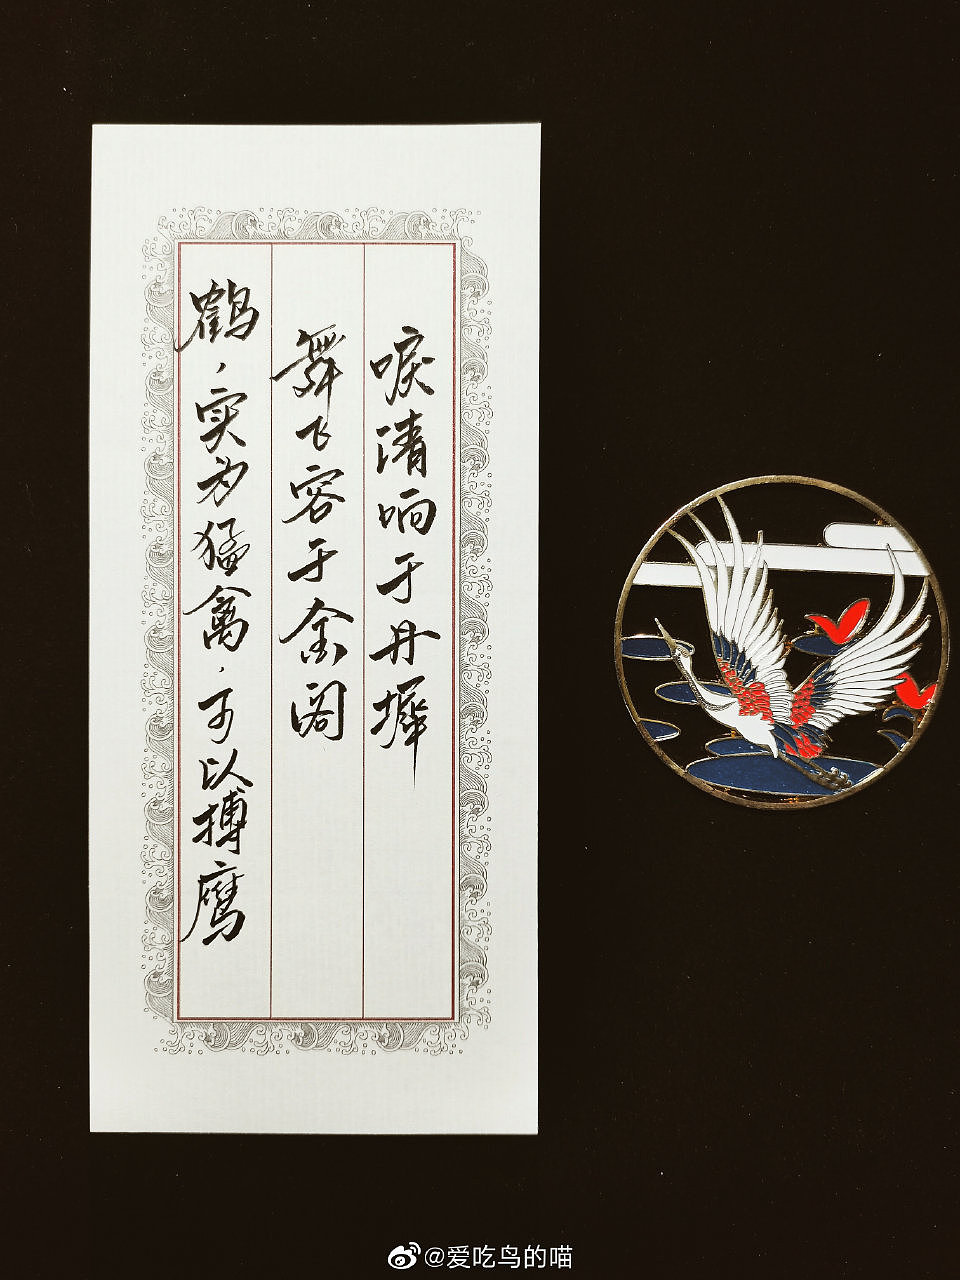 唳清响于丹墀
舞飞容于金阁
鹤，实为猛禽，可以搏鹰
@爱吃鸟的喵